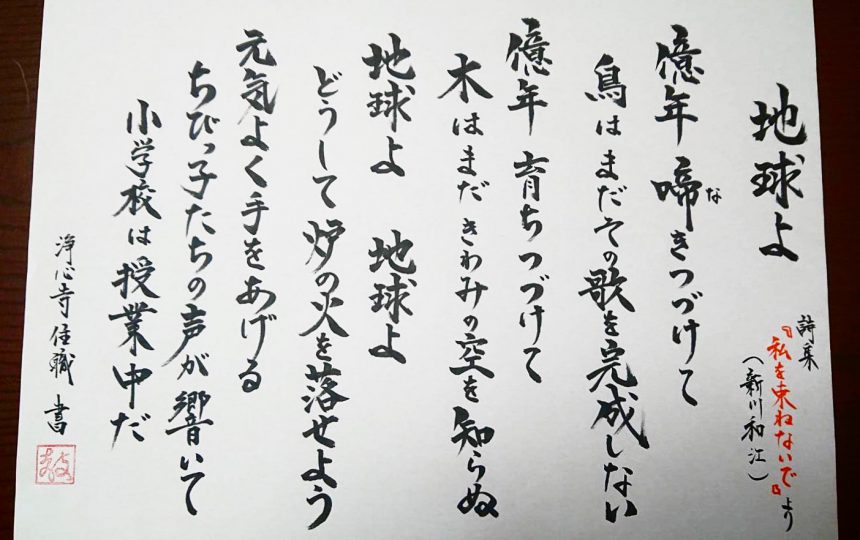 地球よ
詩集
『私を束ねないで』より
(新川和江)
億年 啼きつづけて
な
鳥はまだその歌を完成しない
億年 育ちつづけて
木はまだきわみの空を知らぬ
地球よ 地球よ
どうして炉の火を落せよう
元気よく手をあげる
ちびっ子たちの声が響いて
小学校は授業中だ
浄心寺住職 書